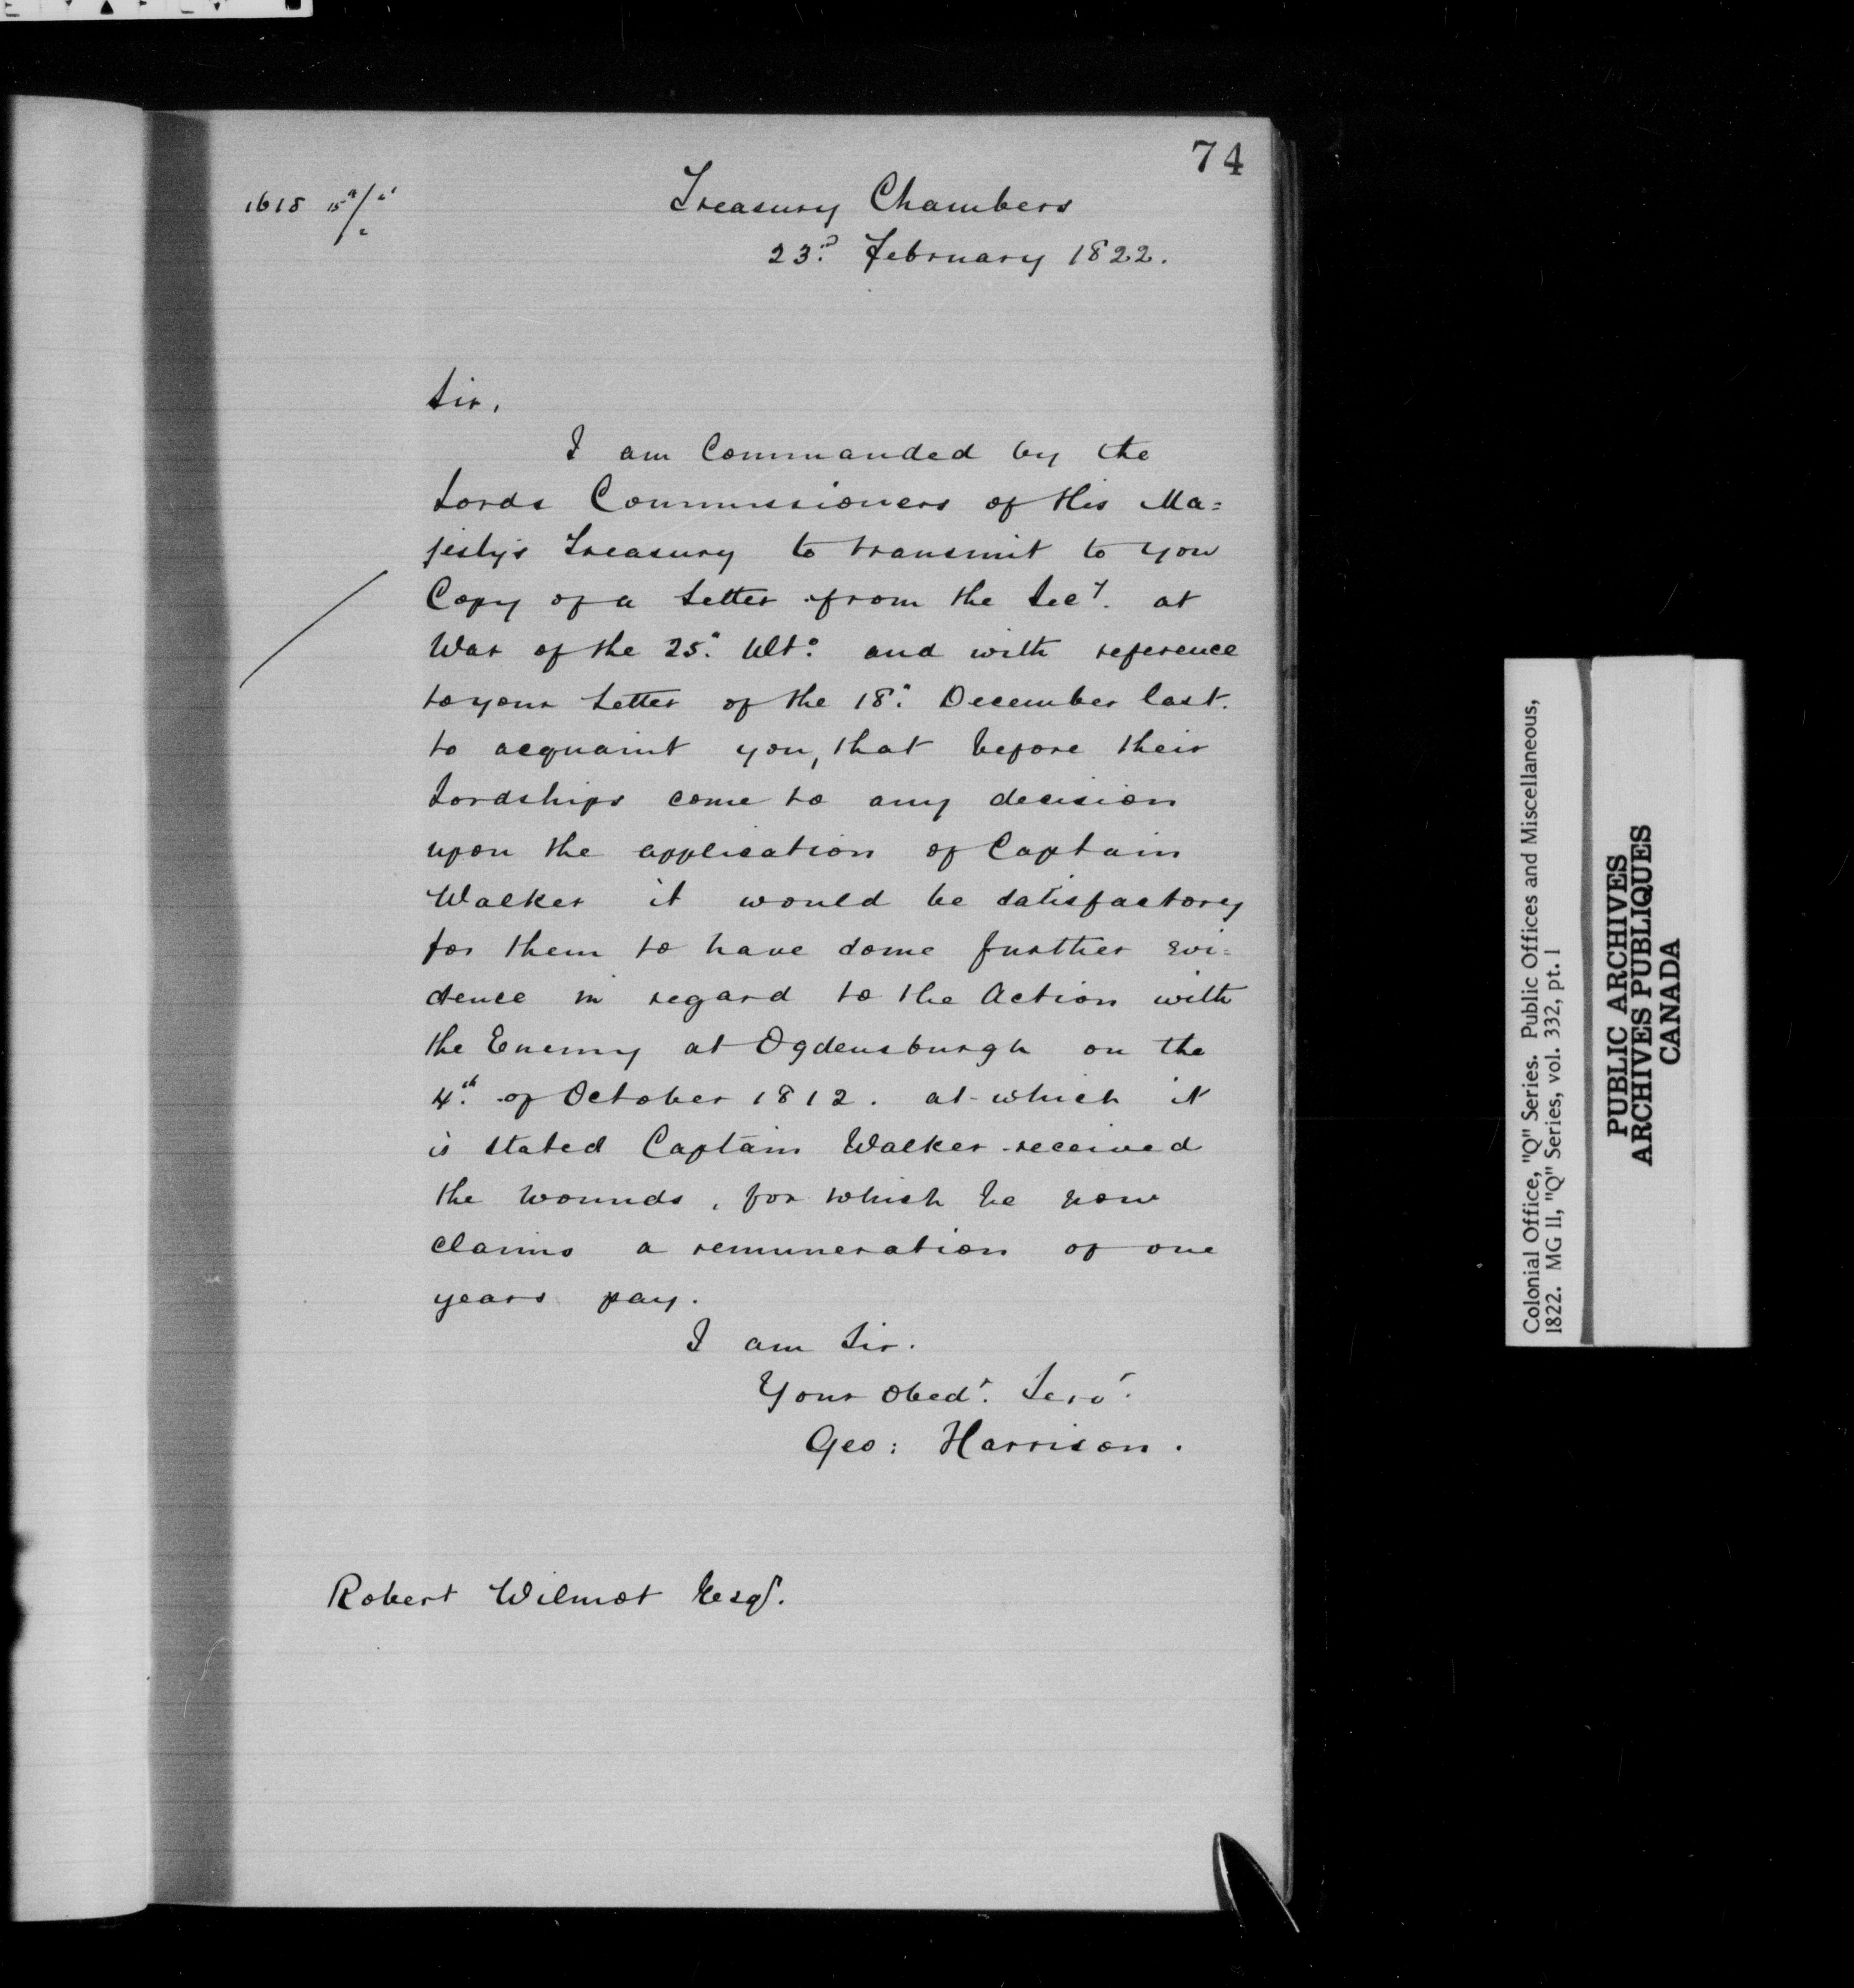 74
1618
Treasury Chambers
23.d February 1822.
Sir,
I am Commanded by the
Lords Commissioners of His Ma=
jesty's Treasury to transmit to you
Copy of a Letter from the Secy. at
War of the 25.th Ulto. and with reference
to your Letter of the 18.th December last.
to acquaint you, that before their
Lordships come to any decision
upon the application of Captain
Walker it would be satisfactory
for them to have some further evi=
dence in regard to the Action with
the Enemy at Ogdensburgh on the
4.th of October 1812. at which it
is stated Captain Walker received
the wounds, for which he now
claims a remuneration of one
years pay.
I am Sir.
Your Obedt. Servt.
Geo: Harrison.
Robert Wilmot Esqr.
Colonial Office, "Q" Series. Public Offices and Miscellaneous,
1822. MG 11, "Q" Series, vol. 332, pt. 1
PUBLIC ARCHIVES
ARCHIVES PUBLIQUES
CANADA